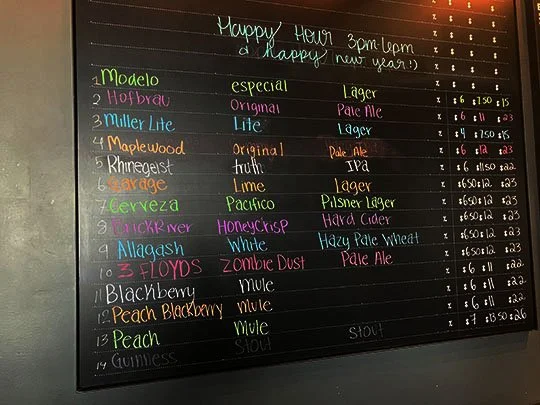 % $ $ $
% $ $ $
Happy Hour 3pm-6pm
& happy new year!:)
1 Modelo especial Lager % $6 $750 $15
2 Hofbrau Original Pale Ale % $6 $11 $23
3 Miller Lite Lite Lager % $4 750 $15
4 Maplewood original Pale Ale % $6 $12 $23
5 Rhinegeist truth IPA % $6 1150 $22
6 Garage Lime Lager % $650 $12 $23
7 Cerveza Pacifico Pilsner Lager % $650 $12 $23
8 BrickRiver HoneyCrisp Hard Cider % $650 $12 $23
9 Allagash White Hazy Pale Wheat % $650 $12 $23
10 3 FLOYDS Zombie Dust Pale Ale % $650 $12 $23
11 Blackberry Mule % $6 $11 $22
12 Peach Blackberry Mule % $6 $11 $22
13 Peach Mule % $6 $11 $22
14 Guinness Stout Stout % $7 1350 $26